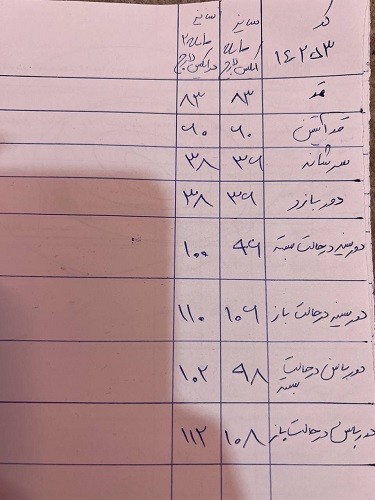 کد ۱۶۲۵۳ سایز ساده ایکس لارج سایز ساده ۲ ایکس لارج
قد ۸۳ ۸۳
قد آستین ۶۰ ۶۰
سرشانه ۳۶ ۳۸
دور بازو ۳۶ ۳۸
دور سینه در حالت بسته ۹۶ ۱۰۰
دور سینه در حالت باز ۱۰۶ ۱۱۰
دور باسن در حالت بسته ۹۸ ۱۰۲
دور باسن در حالت باز ۱۰۸ ۱۱۲